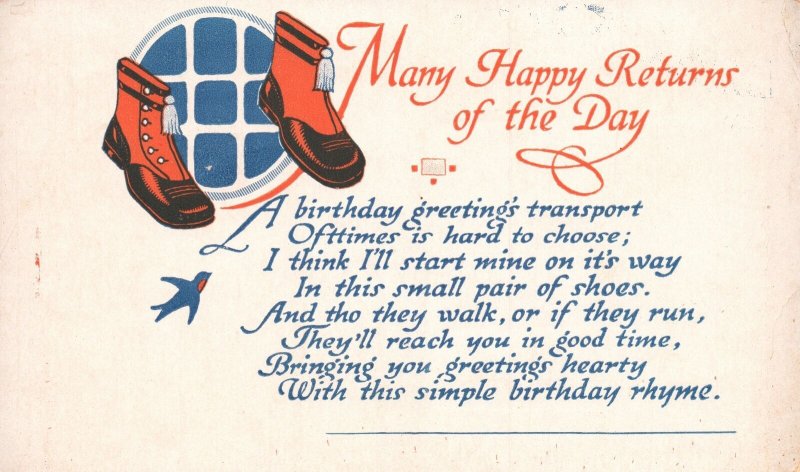 Many Happy Returns
of the Day
A birthday greeting's transport
Ofttimes is hard to choose;
I think I'll start mine on it's way
In this small pair of shoes.
And tho they walk, or if they run,
They'll reach you in good time,
Bringing you greetings hearty
With this simple birthday rhyme.